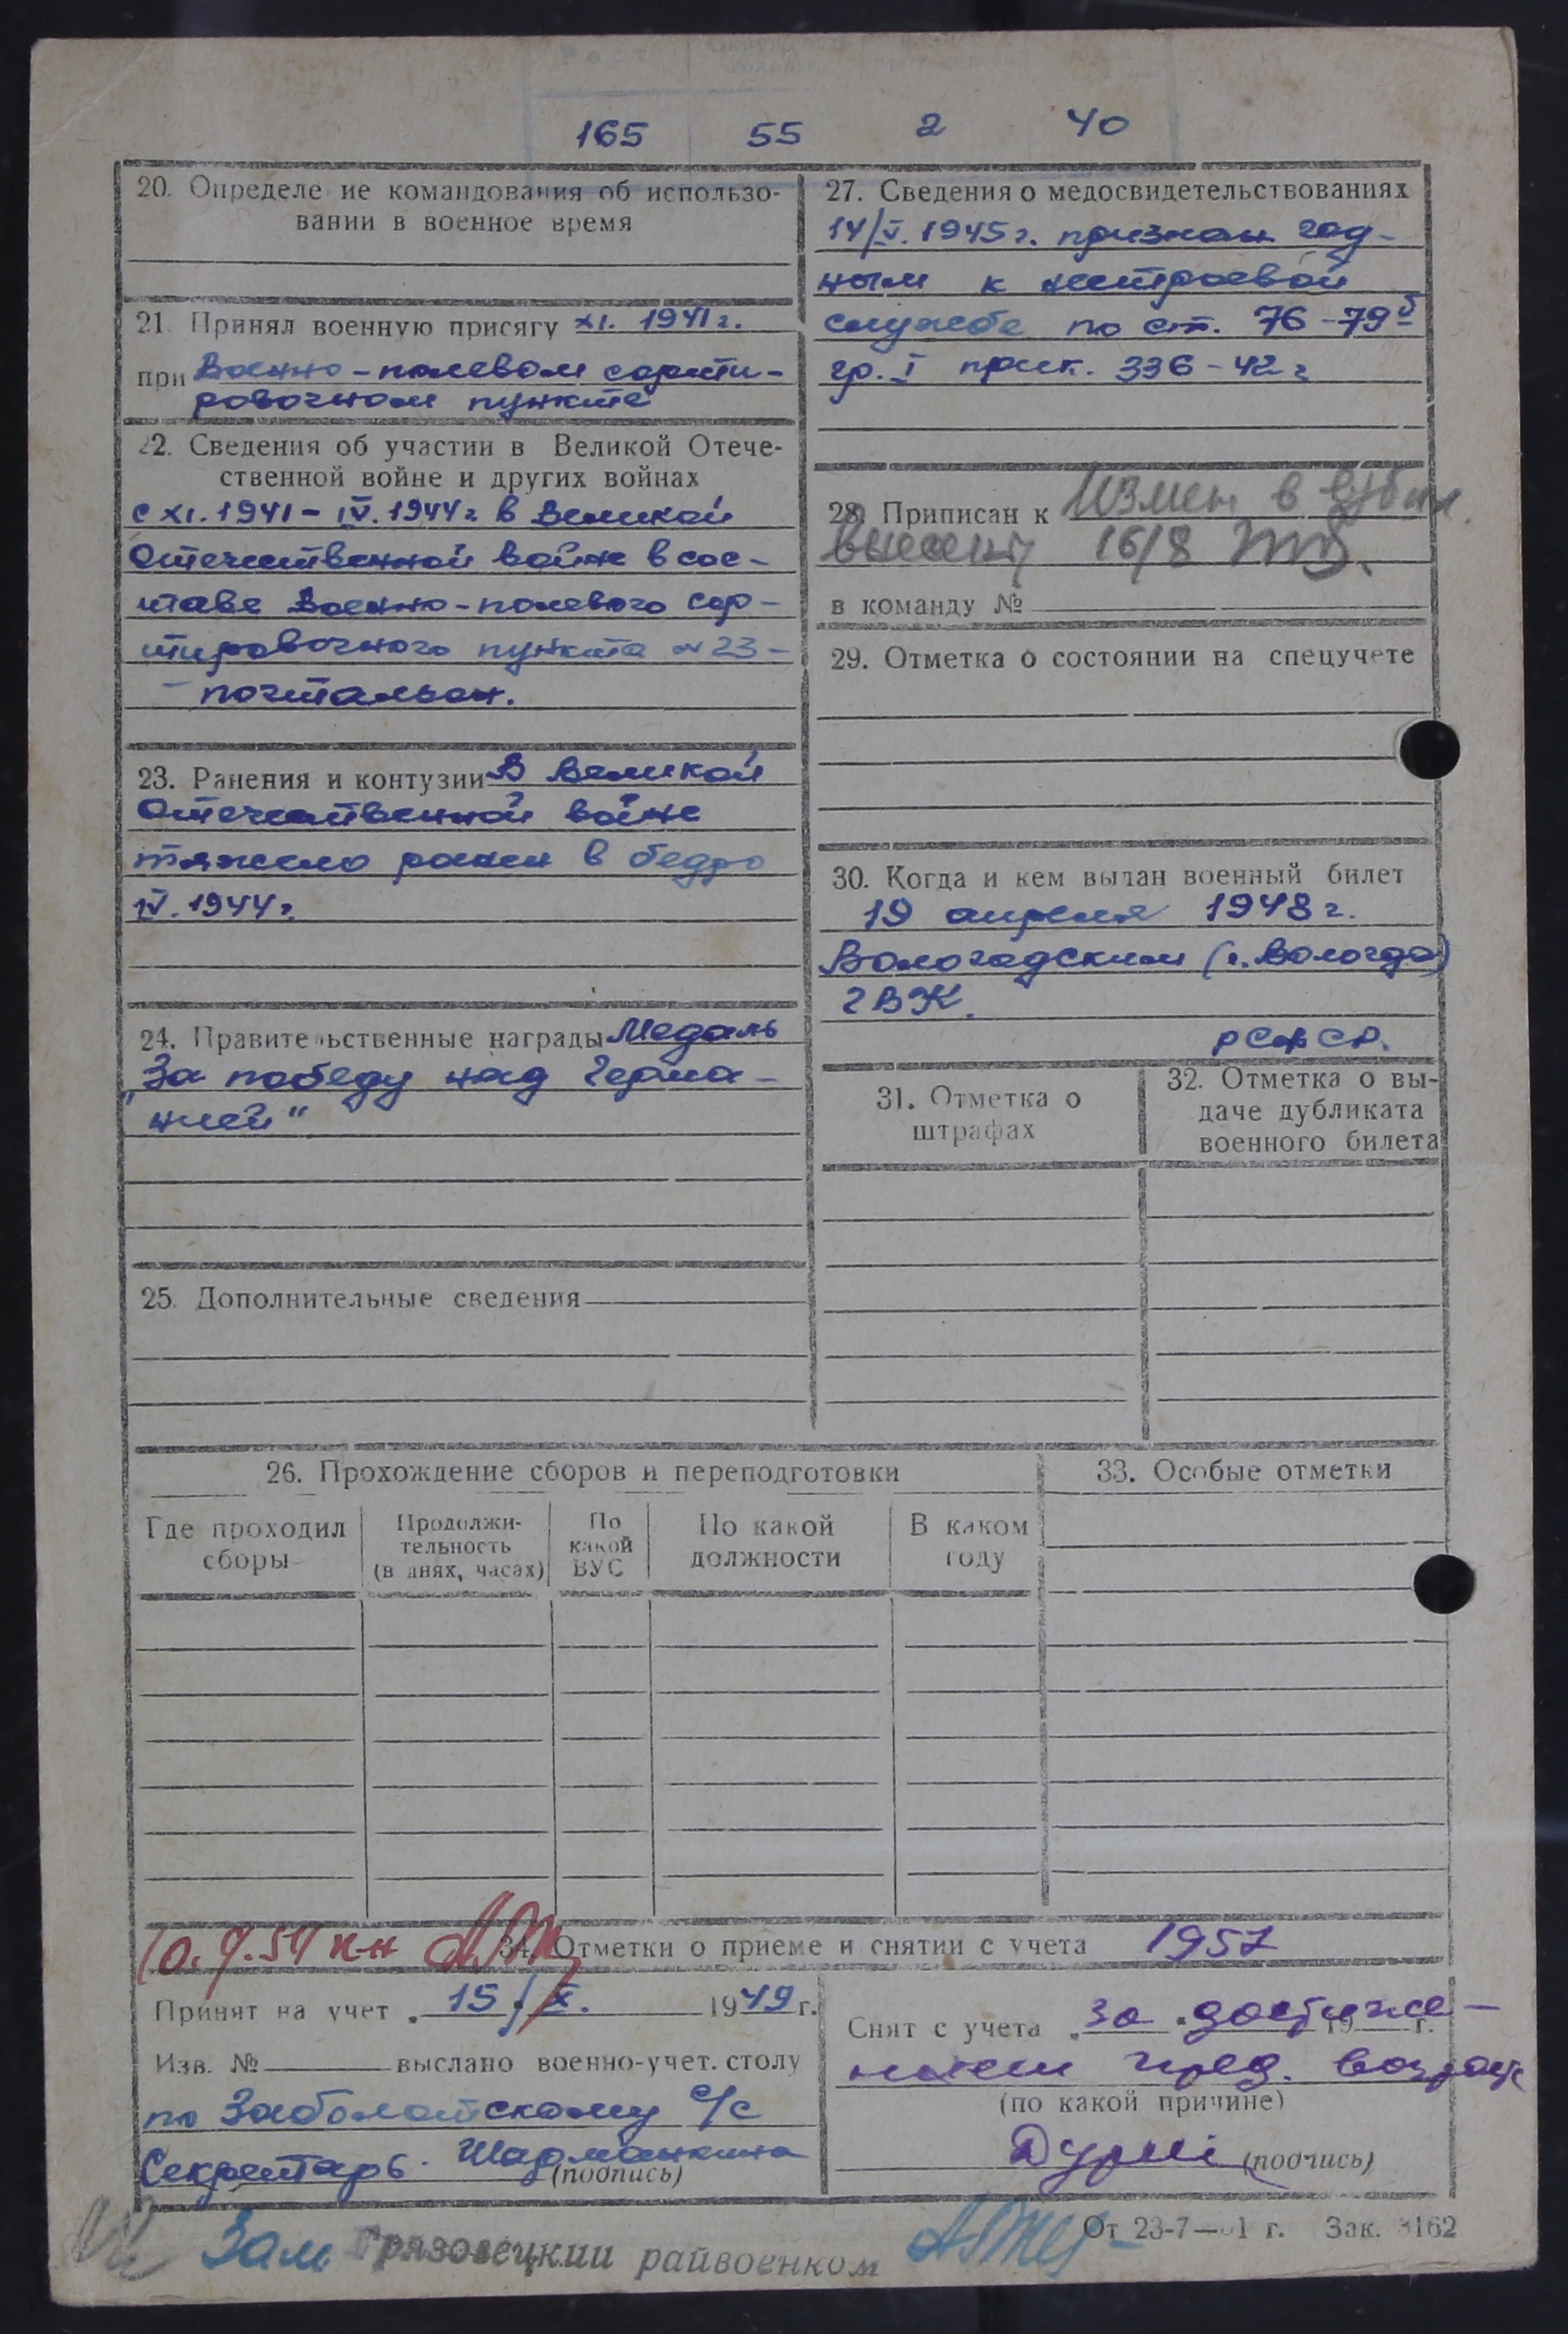 Рост
165 55 2 40
20. Определе ие командования об использо-
вании в военное время
21. Принял военную присягу XI. 1941 г.
при Военно-полевом сорти-
ровочном пункте
22. Сведения об участии в Великой Отече-
ственной войне и других войнах
с XI. 1941 - IV. 1944 г. в Великой
Отечественной войне в сос-
таве Военно-полевого сор-
тировочного пункта № 23 -
- почтальон.
23. Ранения и контузии В Великой
Отечественной войне
тяжело ранен в бедро
IV. 1944 г.
24. Правительственные награды Медаль
„За победу над Герма-
нией"
25. Дополнительные сведения
27. Сведения о медосвидетельствованиях
14/V. 1945 г. признан год-
ным к нестроевой
службе по ст. 76-79б
гр. I прик. 336-42 г
28. Приписан к Измен в
16/8
в команду №
29. Отметка о состоянии на спецучете
30. Когда и кем выдан военный билет
19 апреля 1948 г.
Вологодским (г. Вологда)
ГВК.
РСФСР.
31. Отметка о
штрафах
32. Отметка о вы-
даче дубликата
военного билета
26. Прохождение сборов и переподготовки
Где проходил
сборы
Продолжи-
тельность
(в днях, часах)
По
какой
ВУС
По какой
должности
В каком
году
33. Особые отметки
34. Отметки о приеме и снятии с учета 1957
Принят на учет 15/X. 1949 г.
Изв. № выслано военно-учет. столу
по Заболотскому с/с
Секретарь Шарманкина
(подпись)
Снят с учета за достиже- 19 г.
нием пред. возраст
(по какой причине)
(подпись)
От 23-7— 1 г. Зак. 3162
Зам Грязовецкий райвоенком